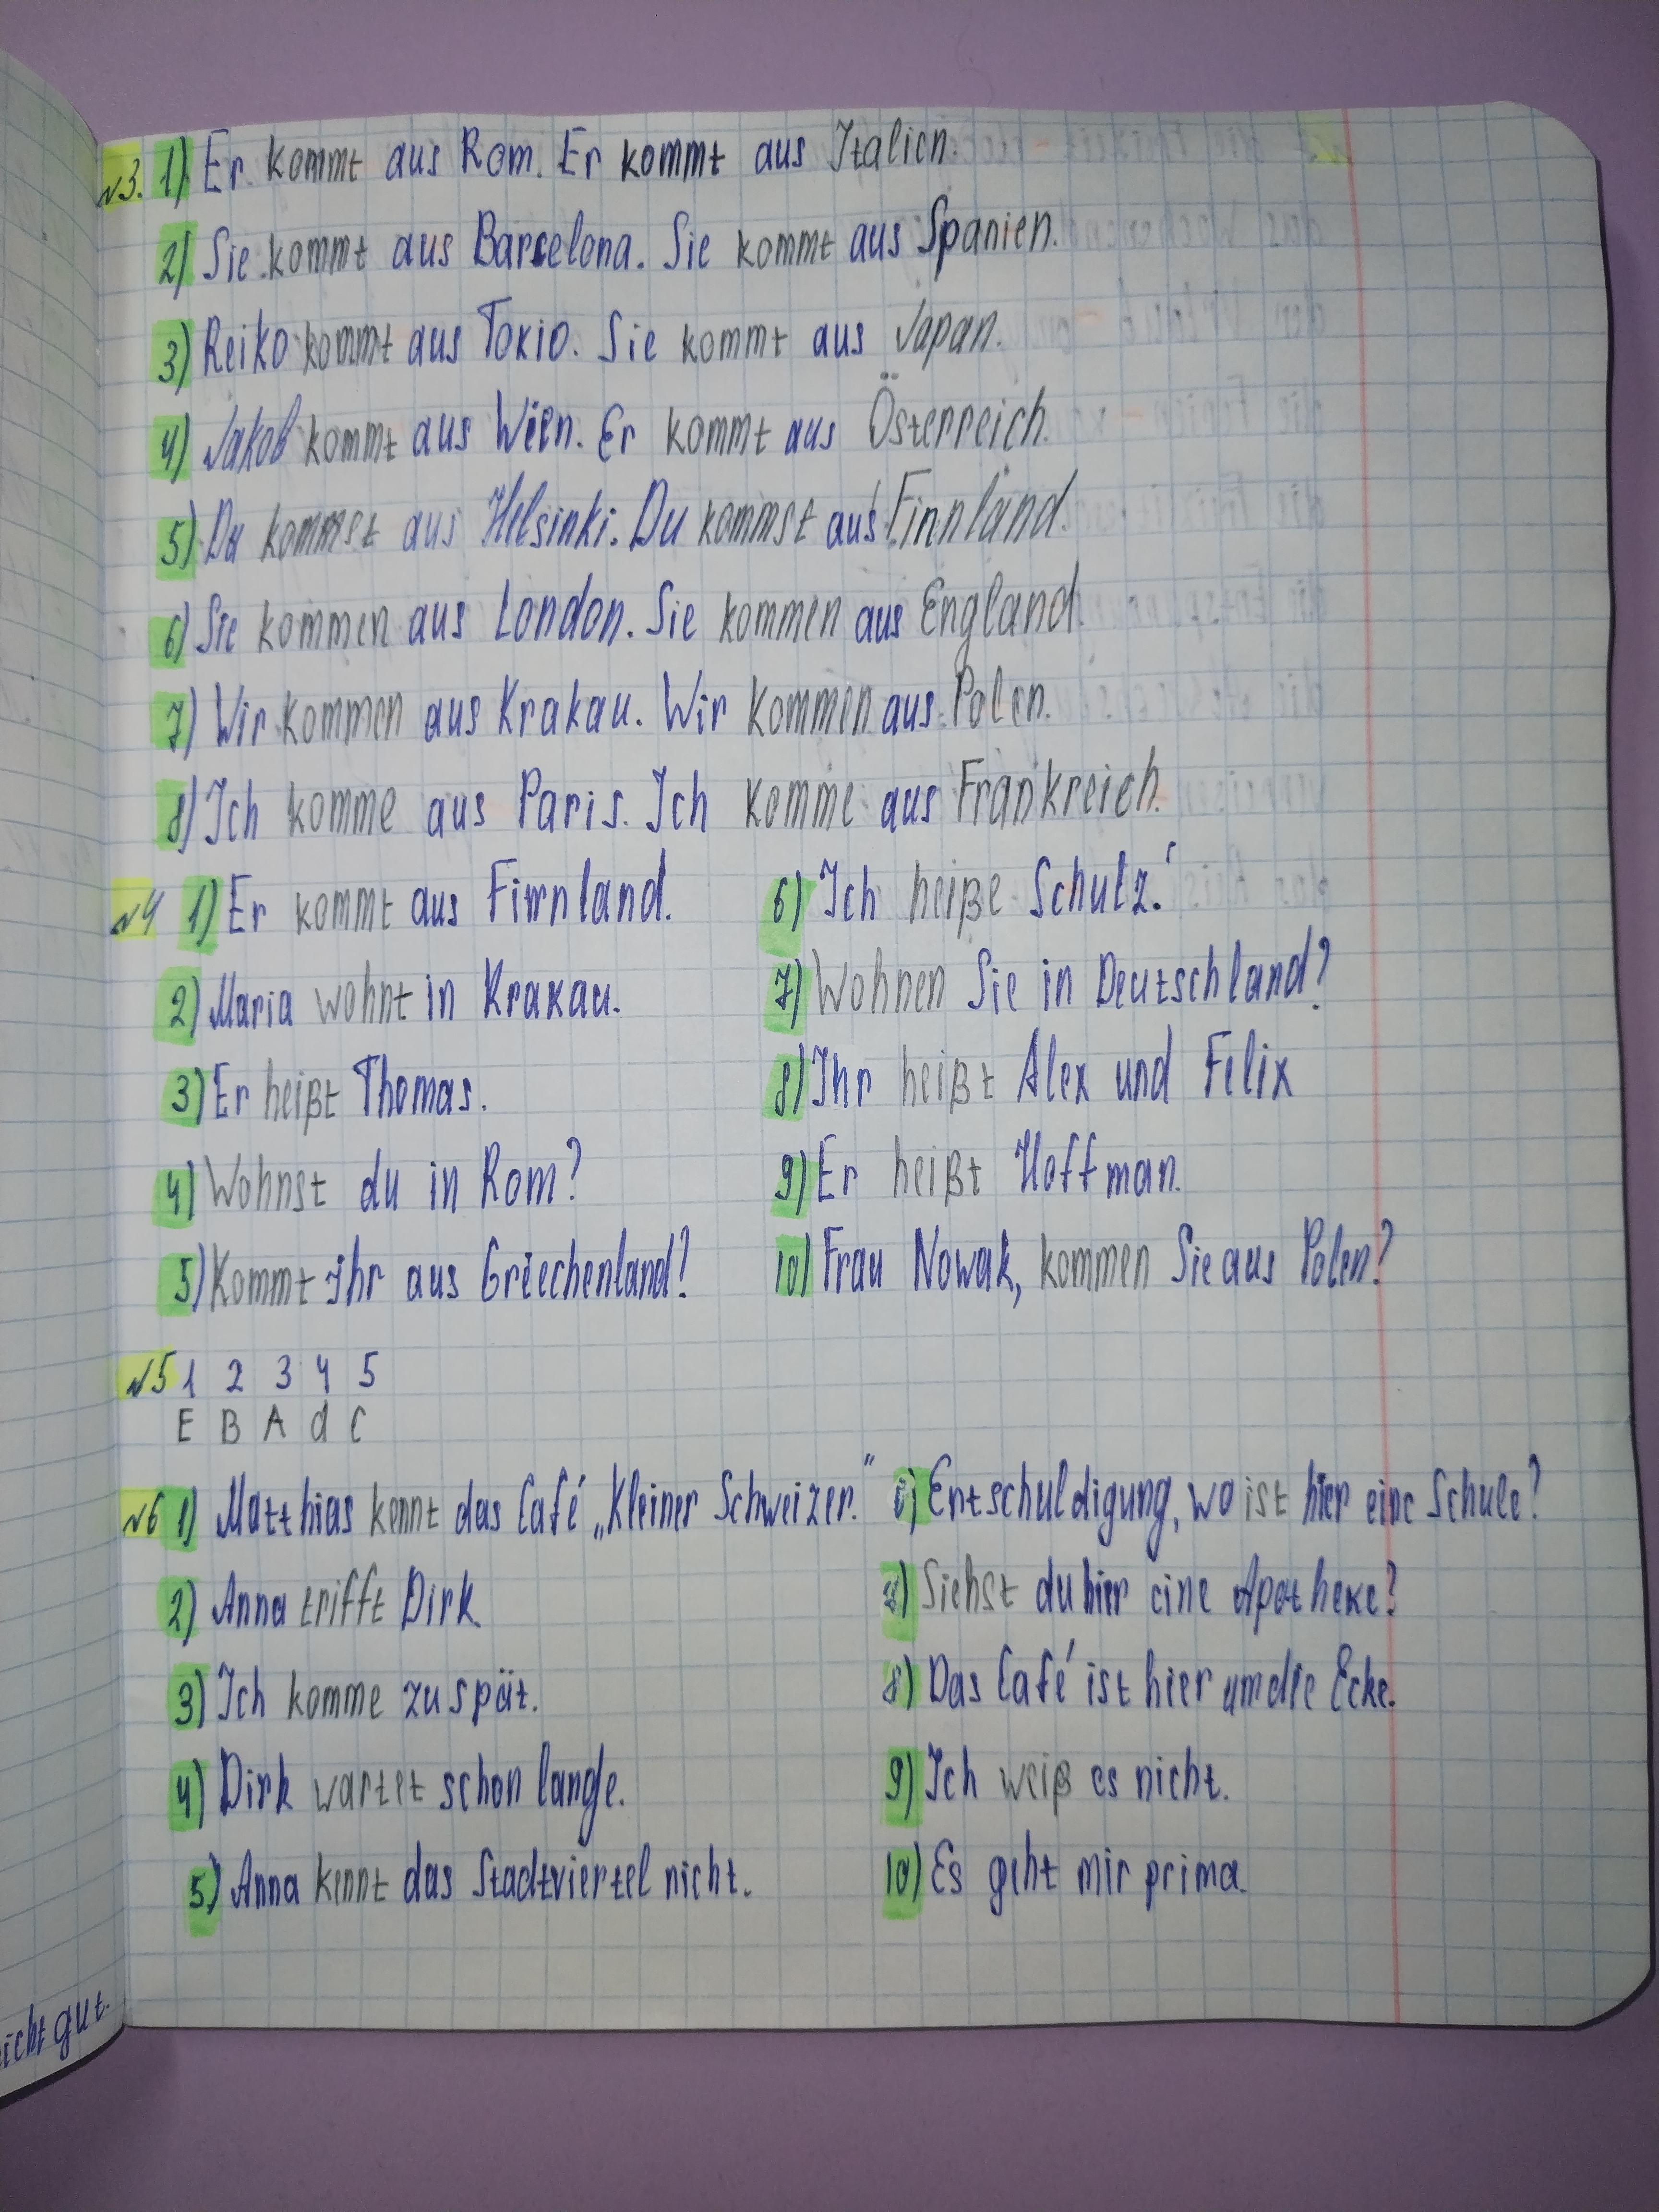 №3. 1) Er kommt aus Rom. Er kommt aus Italien.
2) Sie kommt aus Barcelona. Sie kommt aus Spanien.
3) Reiko kommt aus Tokio. Sie kommt aus Japan.
4) Jakob kommt aus Wien. Er kommt aus Österreich.
5) Du kommst aus Helsinki. Du kommst aus Finnland.
6) Sie kommen aus London. Sie kommen aus England.
7) Wir kommen aus Krakau. Wir kommen aus Polen.
8) Ich komme aus Paris. Ich komme aus Frankreich.
№4 1) Er kommt aus Finnland.
2) Maria wohnt in Krakau.
3) Er heißt Thomas.
4) Wohnst du in Rom?
5) Kommt ihr aus Griechenland?
6) Ich heiße Schulz.
7) Wohnen Sie in Deutschland?
8) Ihr heißt Alex und Felix
9) Er heißt Hoffman.
10) Frau Nowak, kommen Sie aus Polen?
№5 1 2 3 4 5
E B A d C
№6 1) Matthias kennt das Café „Kleiner Schweizer."
2) Anna trifft Dirk
3) Ich komme zu spät.
4) Dirk wartet schon lange.
5) Anna kennt das Stadtviertel nicht.
6) Entschuldigung, wo ist hier eine Schule?
7) Siehst du hier eine Apotheke?
8) Das Café ist hier um die Ecke.
9) Ich weiß es nicht.
10) Es geht mir prima.
icht gut.